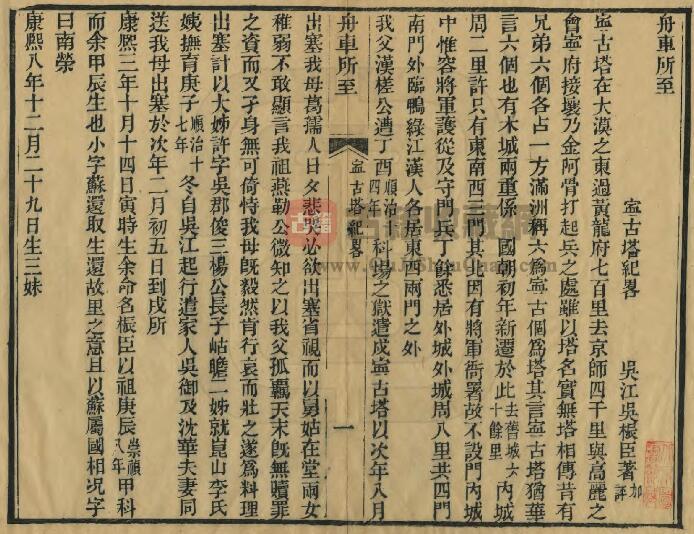 舟車所至
寧古塔紀畧
吳江吳桭臣著
寧古塔在大漠之東過黃龍府七百里去京師四千里與高麗之
會寧府接壤乃金阿骨打起兵之處雖以塔名實無塔相傳昔有
兄弟六個各占一方滿洲稱六爲寧古個爲塔其言寧古塔猶華
言六個也有木城兩重係 國朝初年新遷於此去舊城六十餘里內城
周二里許只有東南西三門其北因有將軍衙署故不設門內城
中惟容將軍護從及守門兵丁餘悉居外城外城周八里共四門
南門外臨鴨綠江漢人各居東西兩門之外
我父漢槎公遭丁酉順治十四年科場之獄遣戍寧古塔以次年八月
舟車所至
寧古塔紀畧
一
出塞我母葛孺人日夕悲哭必欲出塞省視而以舅姑在堂兩女
稚弱不敢顯言我祖燕勒公微知之以我父孤羈天末旣無贖罪
之資而又孑身無可倚恃我母旣毅然肯行哀而壯之遂爲料理
出塞計以大姊許字吳郡俊三楊公長子岵瞻二姊就崑山李氏
姨撫育庚子順治十七年冬自吳江起行遣家人吳御及沈華夫妻同
送我母出塞於次年二月初五日到戍所
康熙三年十月十四日寅時生余命名桭臣以祖庚辰崇禎八年甲科
而余甲辰生也小字蘇還取生還故里之意且以蘇屬國相況字
曰南榮
康熙八年十二月二十九日生三妹